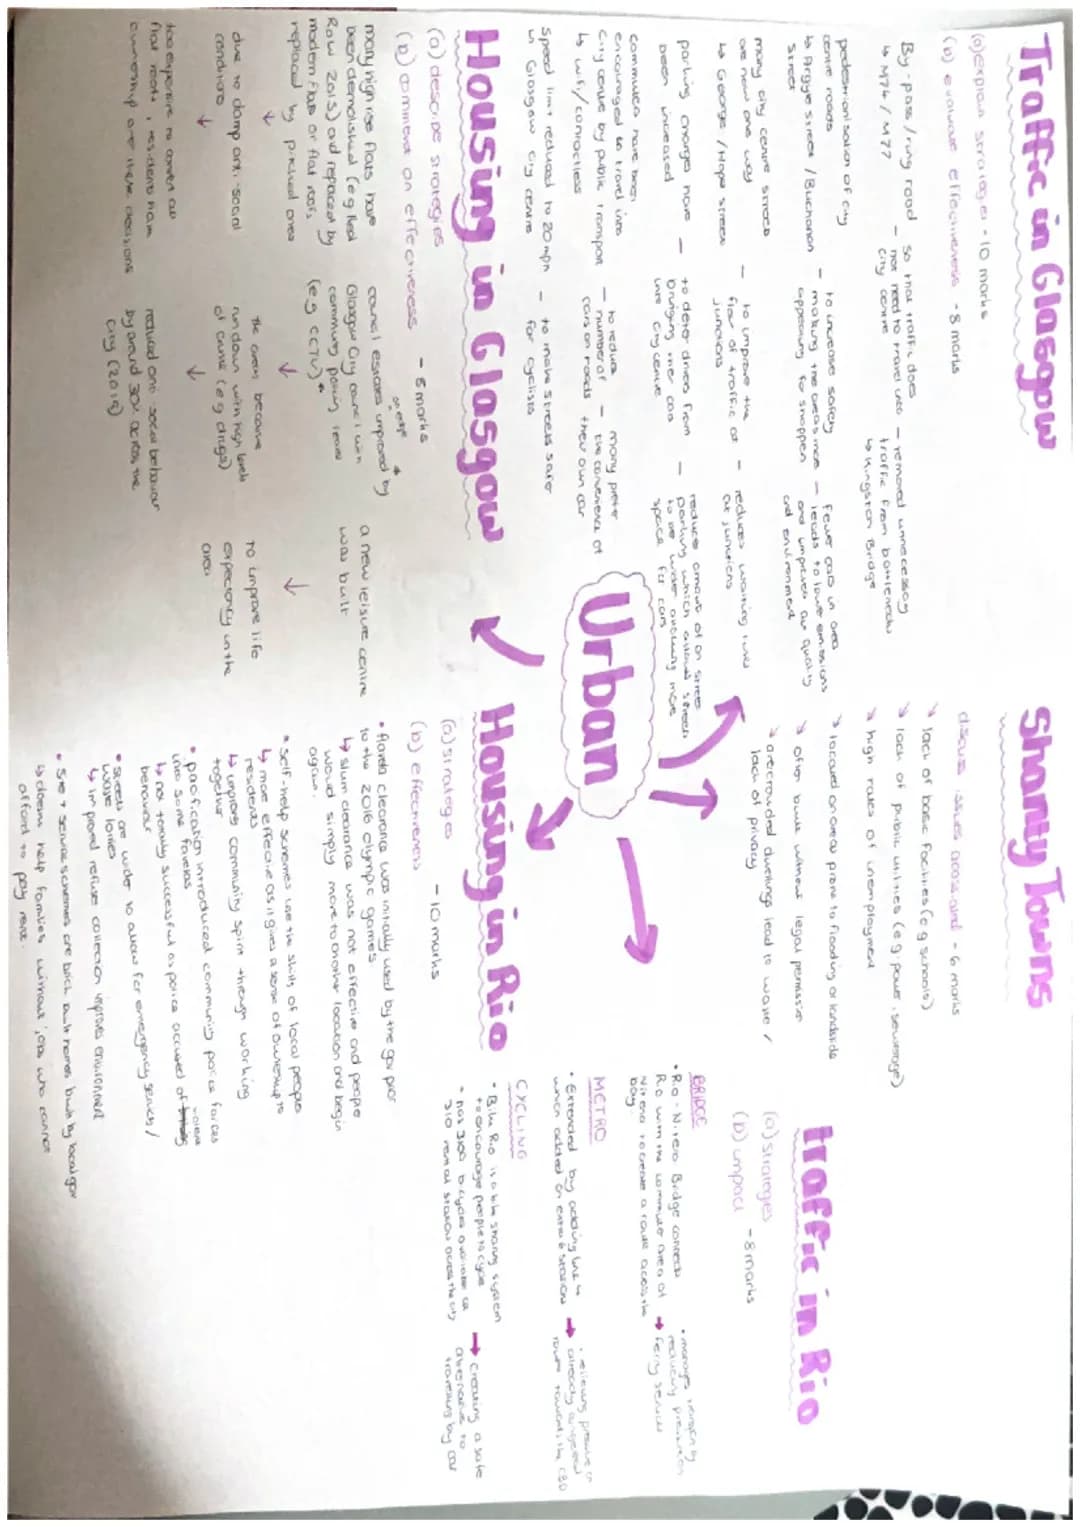 Traffic in Glasgow
(a) explain strategies - 10 marks
(b) evaluate effectiveness - 8 marks
By-pass / ring road - so that traffic does
↳ M74 / M77
not need to travel into
city centre
- removed unnecessary
traffic from bottlenecks
↳ Kingston Bridge
pedestrianisation of city
centre roads
↳ Argyle street / Buchanan
street
- to increase safety
- making the areas more
appealing for shoppers
- fewer cars in area
- leads to lower emissions
and improves air quality
and environment
many city centre streets
are now one way
↳ George / Hope street
- to improve the
flow of traffic at
junctions
- reduces waiting times
at junctions
parking charges have
been increased
- to deter drivers from
bringing their cars
into city centre
- reduces amount of on street
parking which allows streets
to be wider allowing more
space for cars
commuters have been
encouraged to travel into
city centre by public transport
↳ wifi / contactless
- to reduce
number of
cars on roads
- many prefer
the convenience of
their own car
Speed limit reduced to 20mph
in Glasgow city centre
- to make streets safer
for cyclists
Housing in Glasgow
(a) describe strategies
(b) comment on effectiveness
- 5 marks
many high rise flats have
been demolished (e.g Red
Row 2015) and replaced by
modern flats or flat roofs
replaced by pitched ones
↓
due to damp and social
conditions
↓
too expensive to convert all
flat roofs, residents
ownership
decisions
council estates improved by
Glasgow City council with
community policing teams
(e.g CCTV)
↓
the areas became
run down with high levels
of crime (e.g drugs)
↓
reduced anti social behaviour
by around 30% across the
city (2015)
a new leisure centre
was built
↓
to improve life
expectancy in the
area
Urban
Shanty Towns
discuss issues associated - 6 marks
↘ lack of basic facilities (e.g schools)
↘ lack of public utilities (e.g power, sewerage)
↘ high rates of unemployment
↘ located on areas prone to flooding or landslide
↘ often built without legal permission
↘ overcrowded dwellings lead to waste /
lack of privacy
Housing in Rio
(a) strategies
(b) effectiveness
- 10 marks
• favela clearance was initially used by the gov prior
to the 2016 olympic games
↳ slum clearance was not effective and people
would simply move to another location and begin
again.
• self-help schemes use the skills of local people
↳ more effective as it gives a sense of ownership to
residents
↳ improves community spirit through working
together
• pacification introduced community police forces
into some favelas
↳ not totally successful as police accused of violent
behaviour
• streets are wider to allow for emergency services /
waste lorries
↳ improved refuse collection improves environment
• site + service schemes are brick built homes built by local gov
↳ doesn't help families without jobs who cannot
afford to pay rent.
traffic in Rio
(a) strategies
(b) impact
- 8 marks
BRIDGE
• Rio-Niteroi Bridge connects
Rio with the commuter area of
Niteroi to create a route across the
bay.
→ ferry services
METRO
• Extended by adding line 4
which added on extra 6 stations
→ relieving pressure on
already congested
routes towards the CBD
CYCLING
• Bike Rio is a bike sharing system
to encourage people to cycle
• has 3100 bicycles available at
310 rental stations across the city
→ creating a safe
alternative to
travelling by car